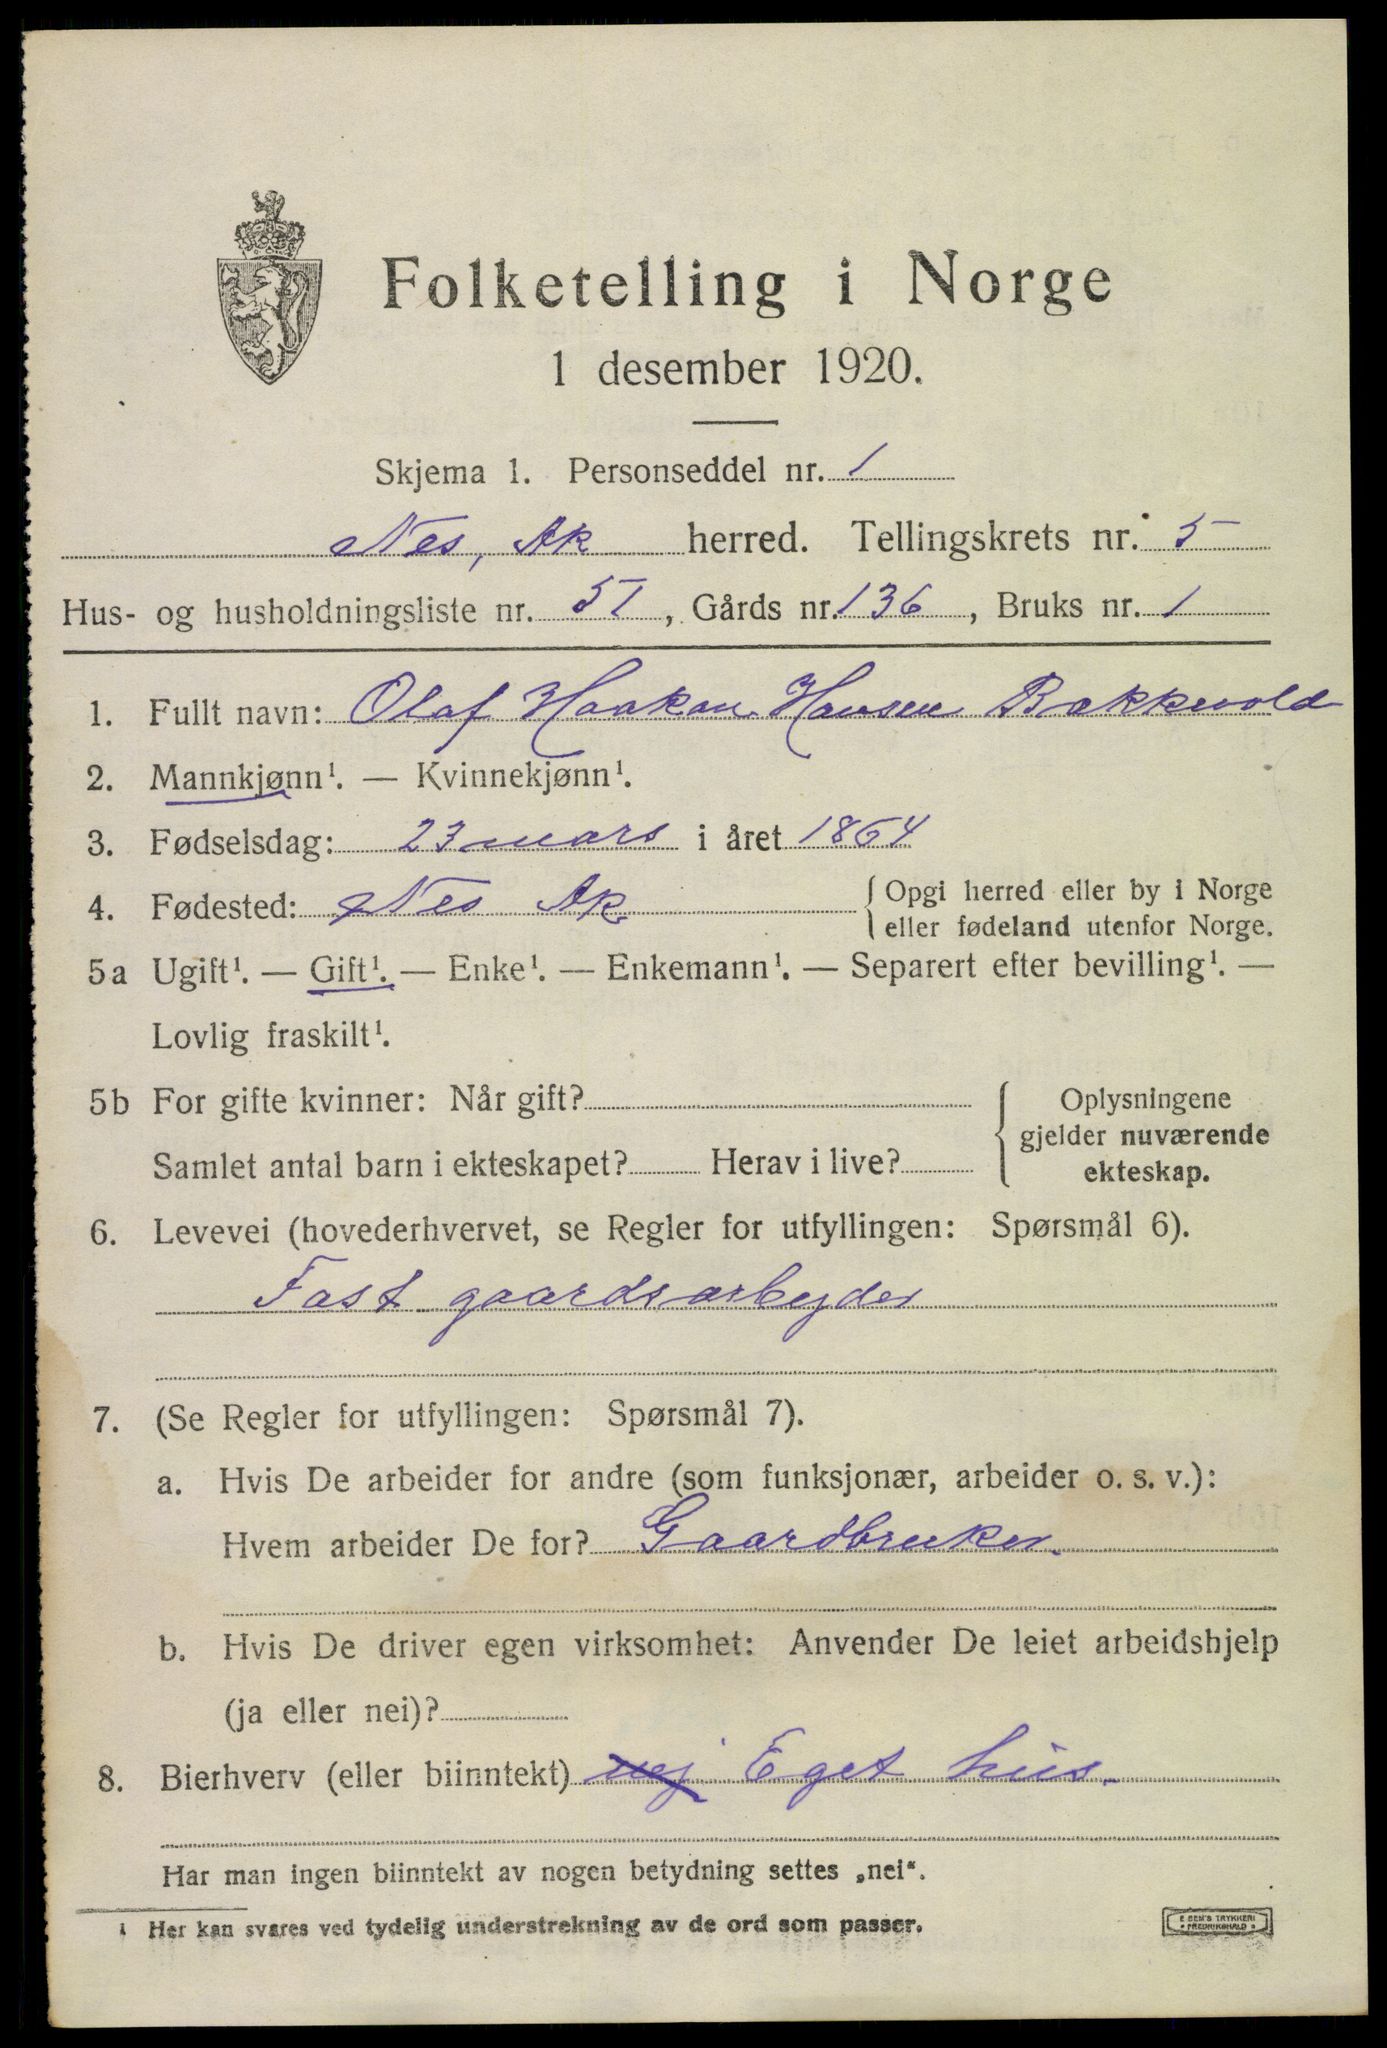 Folketelling i Norge
1 desember 1920.
Skjema 1. Personseddel nr. 1
Nes, Ak herred. Tellingskrets nr. 5
Hus- og husholdningsliste nr. 51, Gårds nr. 136, Bruks nr. 1
1. Fullt navn: Olaf Haakon Hansen Bakkevold
2. Mannkjønn¹. — Kvinnekjønn¹.
3. Fødselsdag: 23 mars i året 1864
4. Fødested: Nes Ak { Opgi herred eller by i Norge
eller fødeland utenfor Norge.
5a Ugift¹. — Gift¹. — Enke¹. — Enkemann¹. — Separert efter bevilling¹. —
Lovlig fraskilt¹.
5b For gifte kvinner: Når gift?
Samlet antal barn i ekteskapet? Herav i live?
{ Oplysningene
gjelder nuværende
ekteskap.
6. Levevei (hovederhvervet, se Regler for utfyllingen: Spørsmål 6).
Fast gaardsarbeyder
7. (Se Regler for utfyllingen: Spørsmål 7).
a. Hvis De arbeider for andre (som funksjonær, arbeider o. s. v.):
Hvem arbeider De for? Gaardbruker.
b. Hvis De driver egen virksomhet: Anvender De leiet arbeidshjelp
(ja eller nei)?
8. Bierhverv (eller biinntekt) nej Eget hus.
Har man ingen biinntekt av nogen betydning settes „nei“.
¹ Her kan svares ved tydelig understrekning av de ord som passer.
E SEM'S TRYKKERI
FREDRIKSHALD